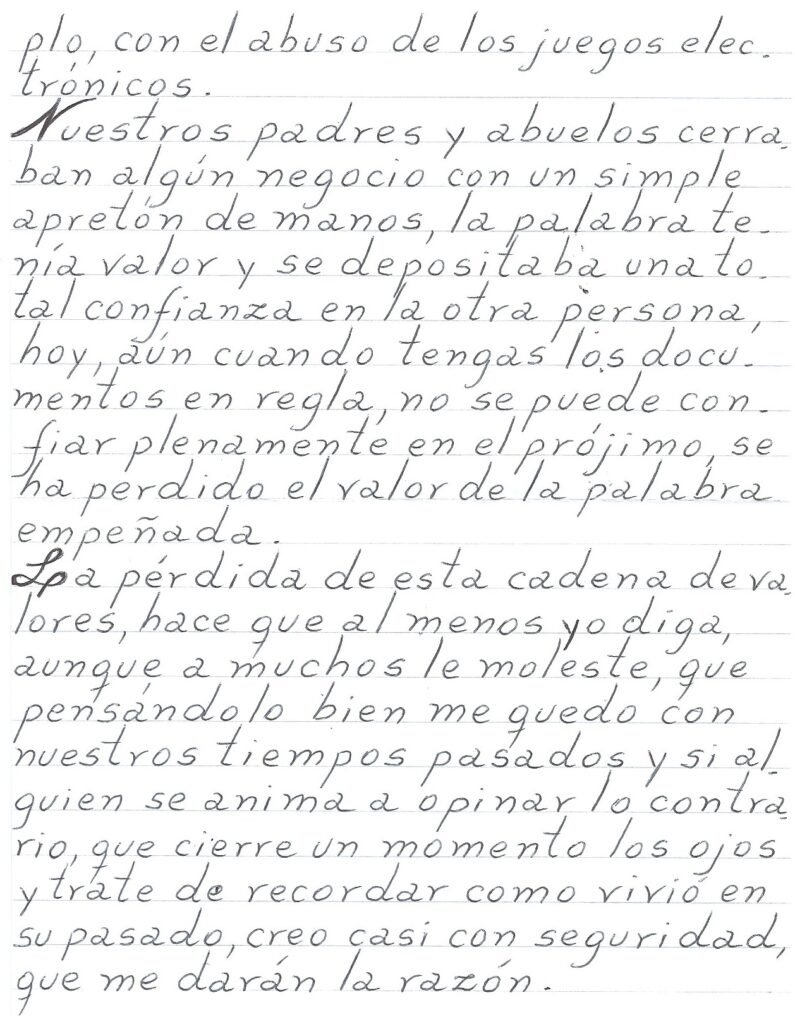 plo, con el abuso de los juegos elec-
trónicos.
Nuestros padres y abuelos cerra-
ban algún negocio con un simple
apretón de manos, la palabra te-
nía valor y se depositaba una to-
tal confianza en la otra persona,
hoy, aún cuando tengas los docu-
mentos en regla, no se puede con-
fiar plenamente en el prójimo, se
ha perdido el valor de la palabra
empeñada.
La pérdida de esta cadena de va-
lores, hace que al menos yo diga,
aunque a muchos le moleste, que
pensándolo bien me quedo con
nuestros tiempos pasados y si al-
guien se anima a opinar lo contra-
rio, que cierre un momento los ojos
y trate de recordar como vivió en
su pasado, creo casi con seguridad,
que me darán la razón.